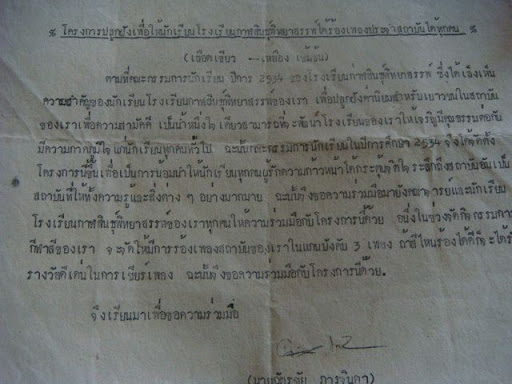 % โครงการปลูกฝังเพื่อให้นักเรียนโรงเรียนกาฬสินธุ์พิทยาสรรพ์ได้ร้องเพลงประจำสถาบันได้ทุกคน %
(เลือดเขียว - เหลือง เข้มข้น)
ตามที่คณะกรรมการนักเรียน ปีการ 2534 ของโรงเรียนกาฬสินธุ์พิทยาสรรพ์ ซึ่งได้เล็งเห็น
ความสำคัญของนักเรียนโรงเรียนกาฬสินธุ์พิทยาสรรพ์ของเรา เพื่อปลูกฝังค่านิยมสำหรับเยาวชนในสถาบัน
ของเราเพื่อความสามัคคี เป็นน้ำหนึ่งใจเดียวสามารถที่จะพัฒนาโรงเรียนของเราให้เจริญมีคุณธรรมต่อกัน
มีความภาคภูมิใจ แก่นักเรียนทุกคนทั่วไป ฉะนั้นคณะกรรมการนักเรียนในปีการศึกษา 2534 จึงได้จัดตั้ง
โครงการนี้ขึ้นเพื่อเป็นการน้อมนำให้นักเรียนทุกคนผู้รักความก้าวหน้าได้กระตุ้นจิตใจ ระลึกถึงสถาบันอันเป็น
สถาบันที่ให้ทั้งความรู้และสิ่งต่าง ๆ อย่างมากมาย ฉะนั้นจึงขอความร่วมมือมายังคณาจารย์และนักเรียน
โรงเรียนกาฬสินธุ์พิทยาสรรพ์ของเราทุกคนให้ความร่วมมือกับโครงการนี้ด้วย อนึ่งในช่วงจัดกิจกรรมการ
กีฬาสีของเรา จะจัดให้มีการร้องเพลงสถาบันของเราในเกณฑ์บังคับ 3 เพลง ถ้าสีไหนร้องได้ดีก็จะได้รั
รางวัลดีเด่นในการเชียร์เพลง ฉะนั้นจึงขอความร่วมมือกับโครงการนี้ด้วย.
จึงเรียนมาเพื่อขอความร่วมมือ